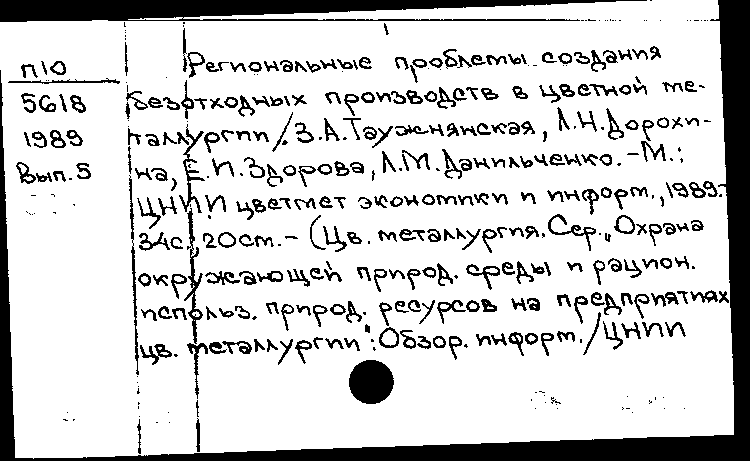 П10
5618
1989
Вып. 5
Региональные проблемы создания
безотходных производств в цветной ме-
таллургии / З.А. Таужнянская, Л.Н. Дорохи-
на, Е.И. Здорова, Л.М. Данильченко. - М.:
ЦНИИ цветмет экономики и информ., 1989.-
34с., 20см. - (Цв. металлургия. Сер. „Охрана
окружающей природ. среды и рацион.
использ. природ. ресурсов на предприятиях
цв. металлургии": Обзор. информ. / ЦНИИ